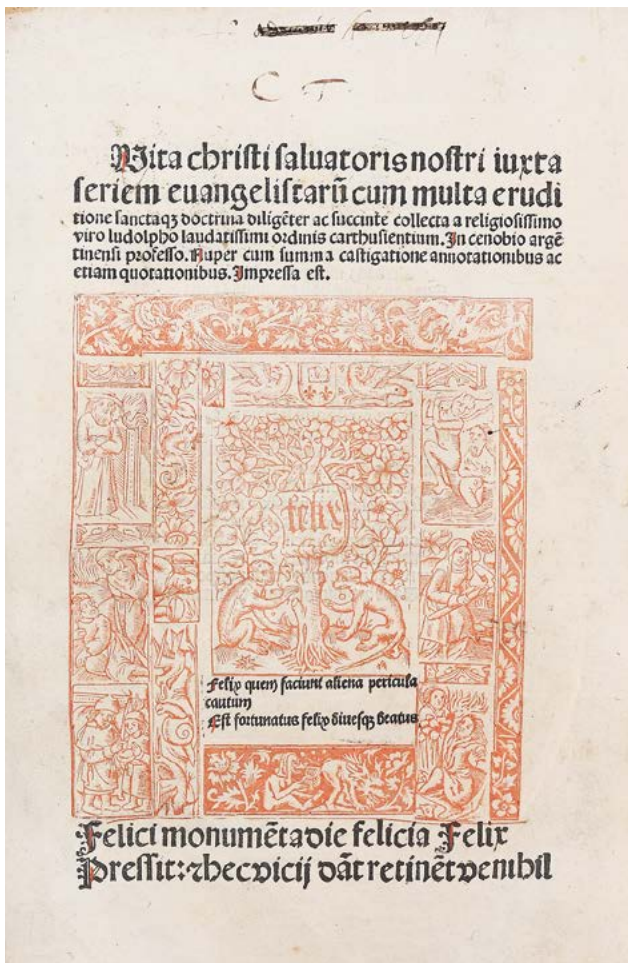 C T
Vita christi saluatoris nostri iuxta
seriem euangelistarū cum multa erudi
tione sanctaqꝫ doctrina diligēter ac succinte collecta a religiosissimo
viro ludolpho laudatissimi ordinis carthusientium. In cenobio argē
tinensi professo. Nuper cum summa castigatione annotationibus ac
etiam quotationibus. Impressa est.
felix
Felix quem faciunt aliena pericula
cautum
Est fortunatus felix diuesqꝫ beatus
Felici monumēta die felicia Felix
Pressit: ⁊ hec vicij dāt retinēt ve nihil